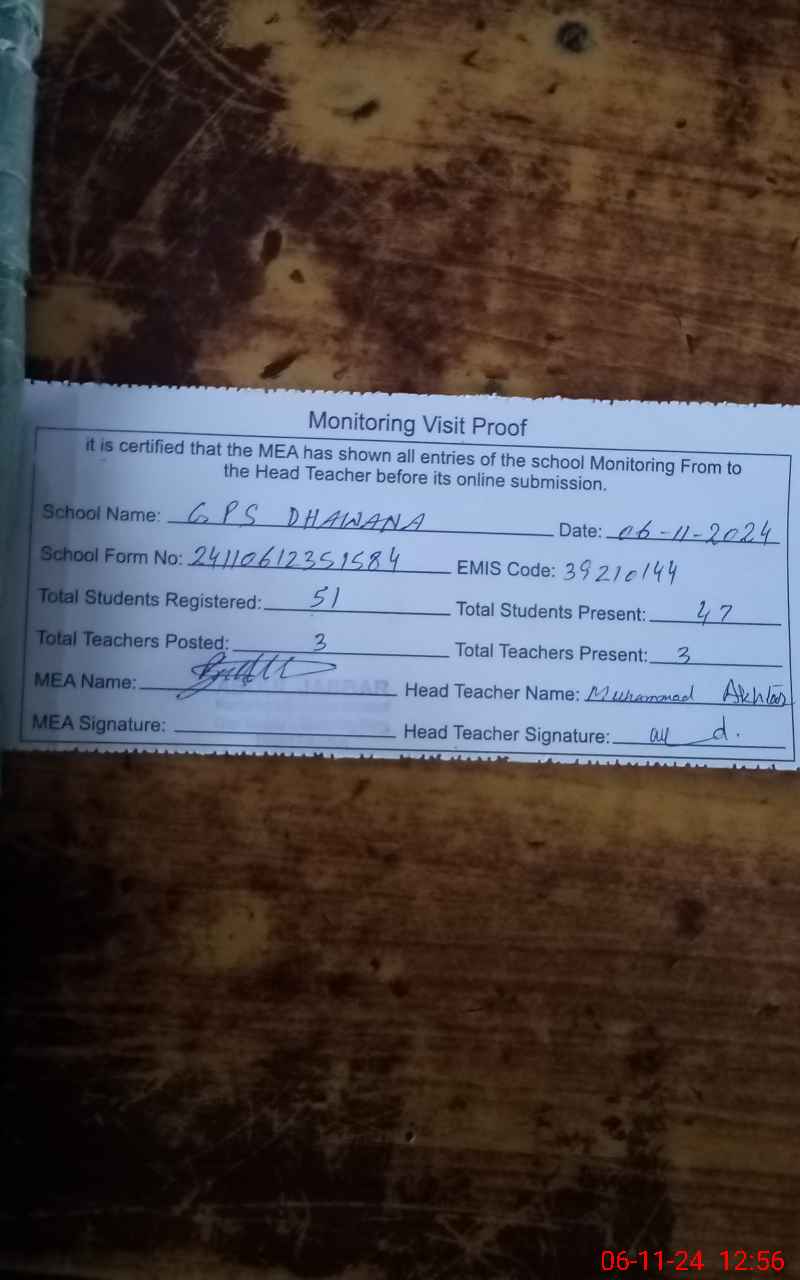 Monitoring Visit Proof
it is certified that the MEA has shown all entries of the school Monitoring From to
the Head Teacher before its online submission.
School Name: GPS DHAWANA Date: 06-11-2024
School Form No: 24110612351584 EMIS Code: 39210144
Total Students Registered: 51 Total Students Present: 47
Total Teachers Posted: 3 Total Teachers Present: 3
MEA Name: Head Teacher Name: Muhammad Akhtar
MEA Signature: Head Teacher Signature:
06-11-24 12:56